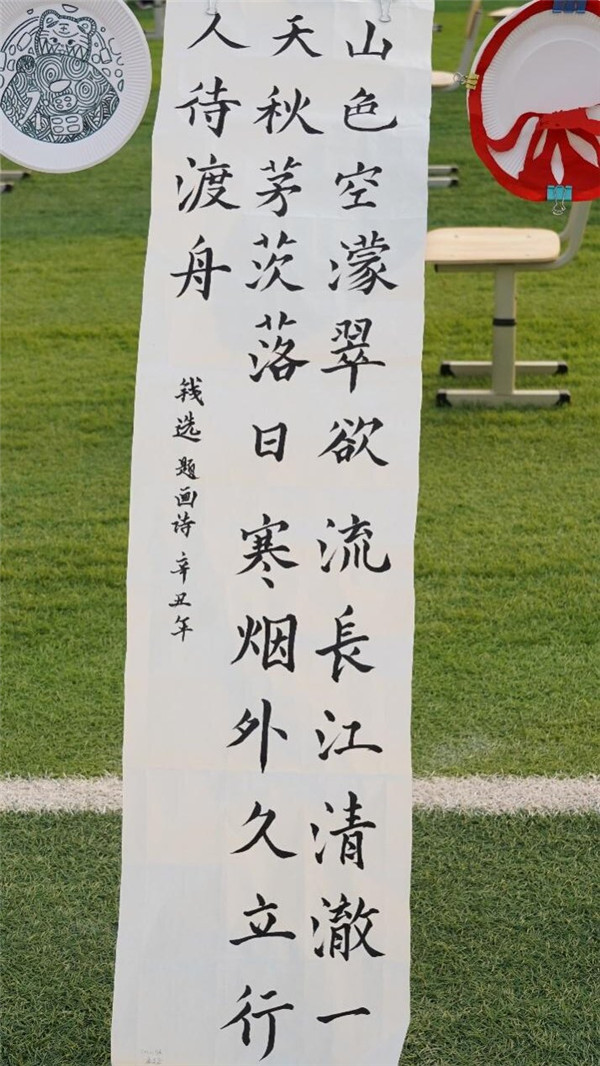 山色空濛翠欲流長江清澈一
天秋茅茨落日寒烟外久立行
人待渡舟
钱选题画诗辛丑年